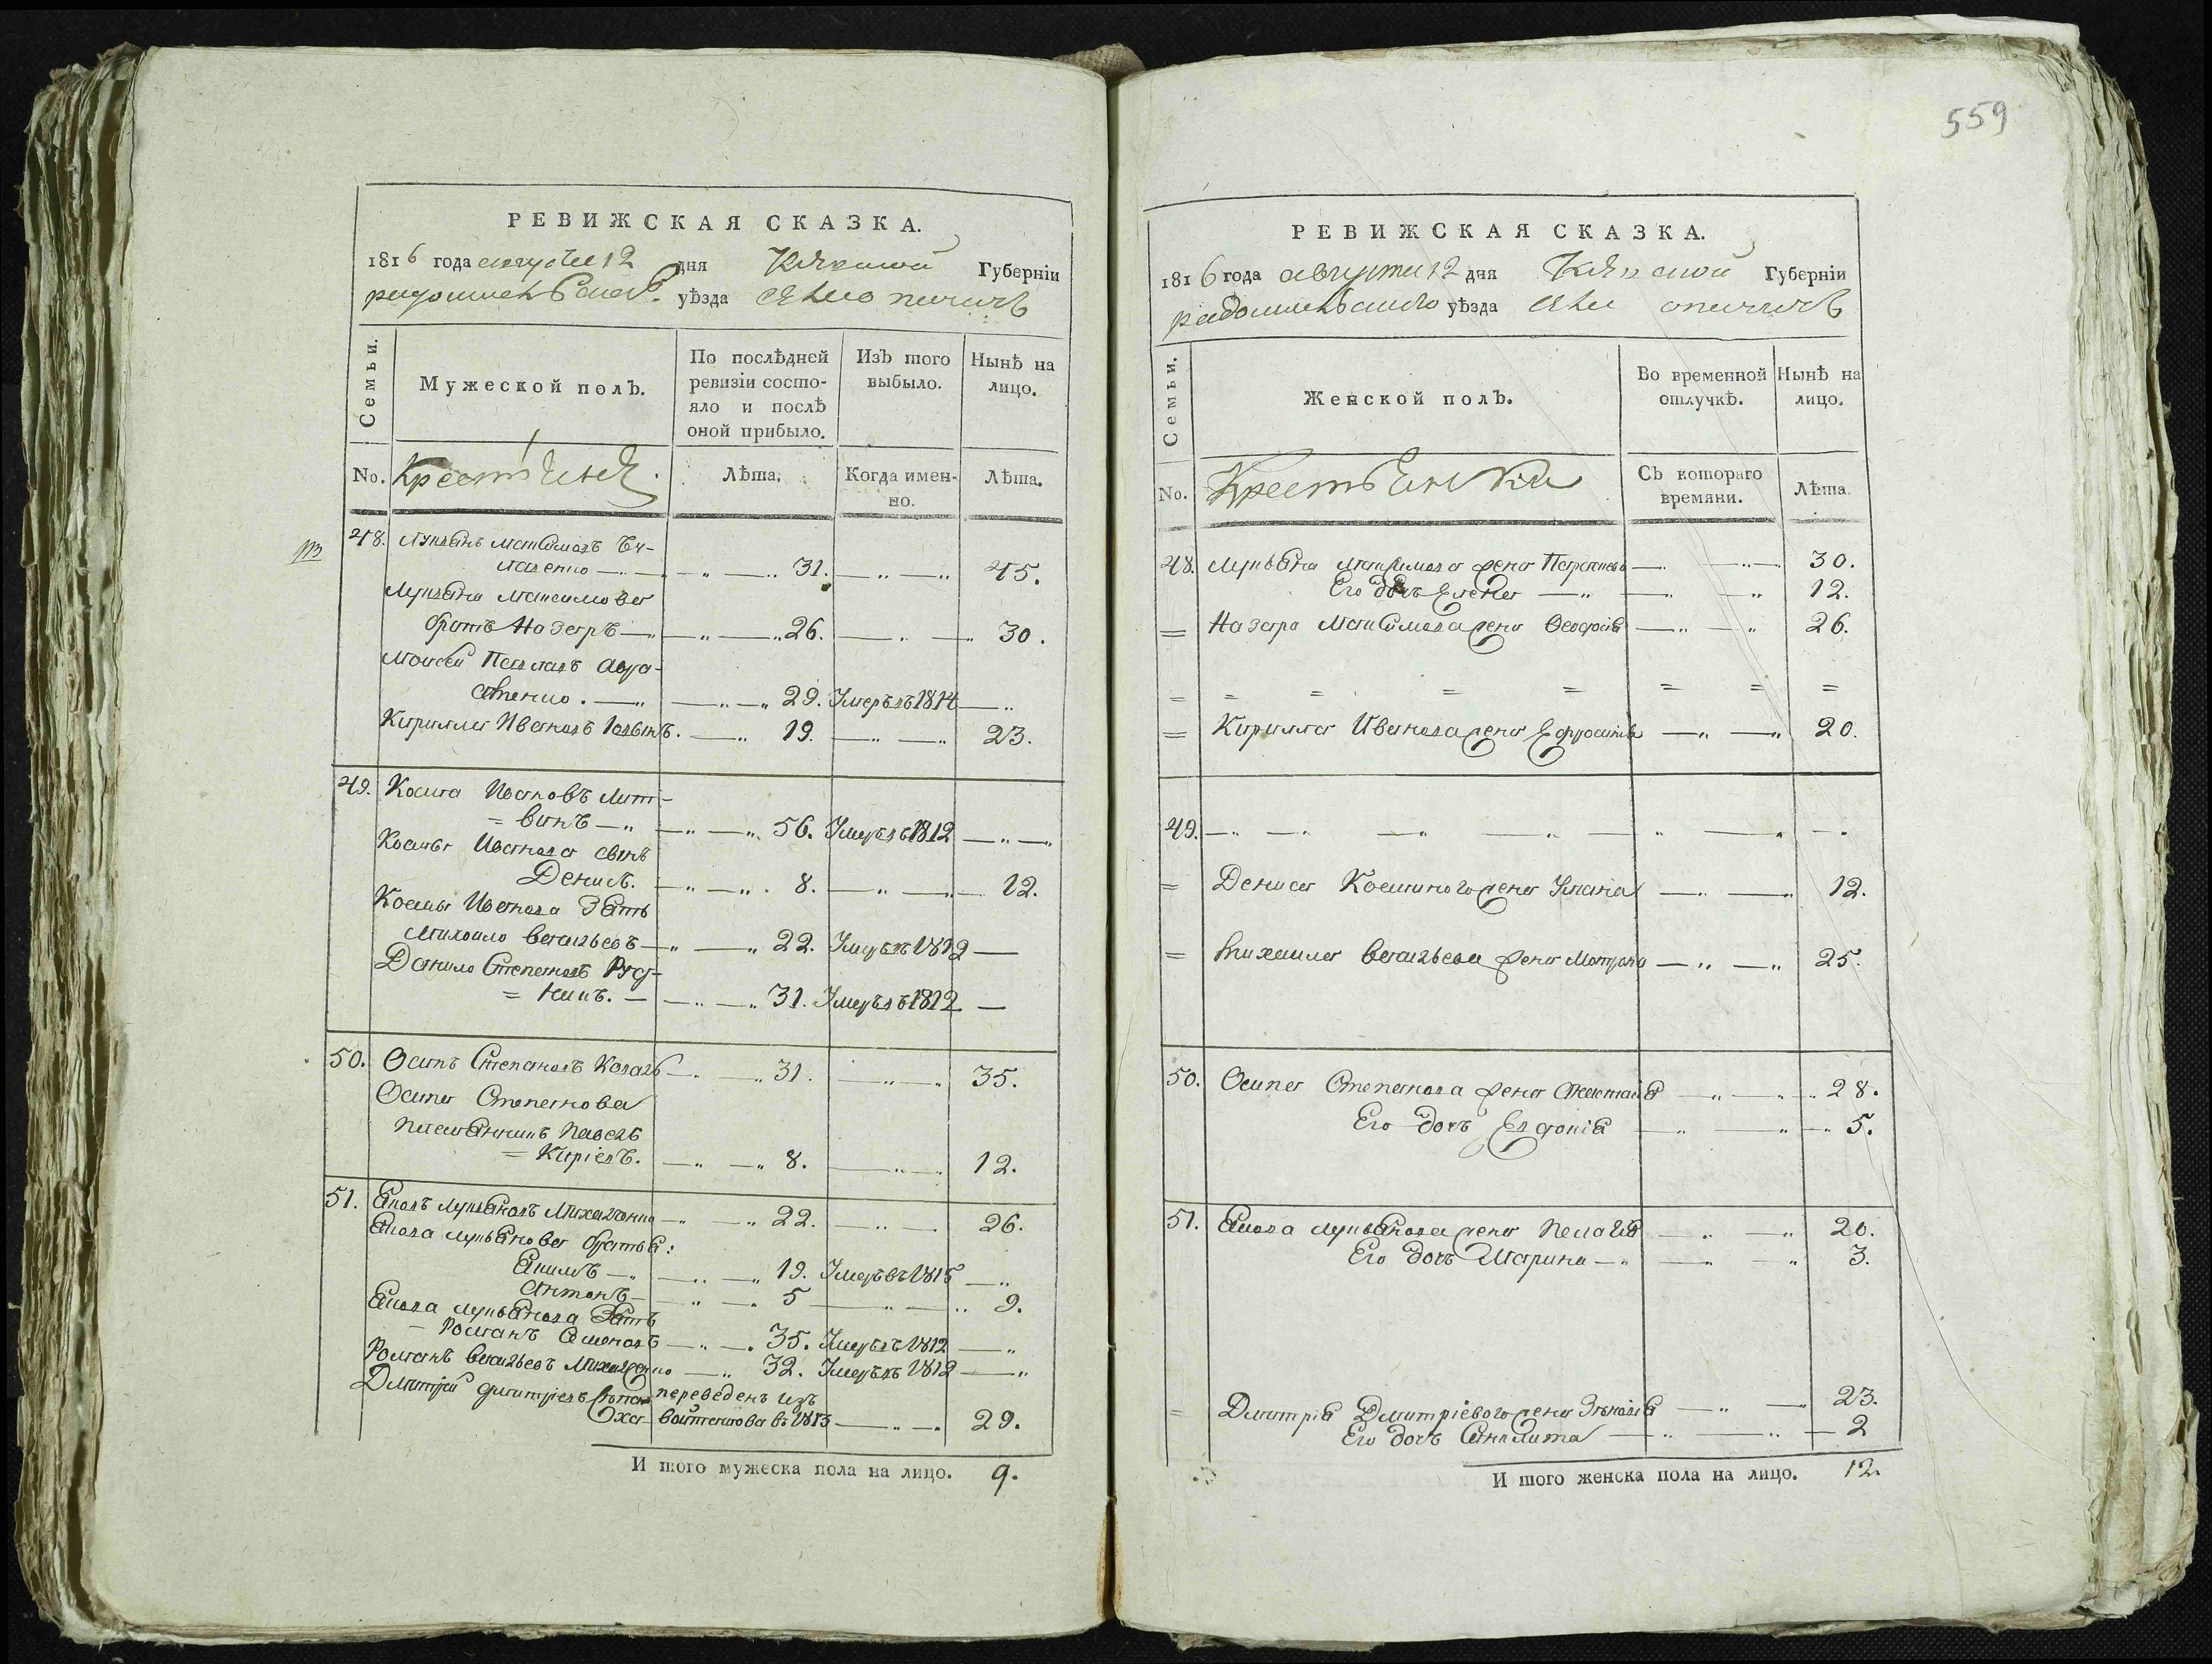 РЕВИЖСКАЯ СКАЗКА.
1816 года августа 12 дня Кіевской Губерніи
радомысльскаго уѣзда села
Семьи.
Мужеской полъ.
По послѣдней ревизіи состо-
яло и послѣ
оной прибыло.
Изъ того
выбыло.
Нынѣ на
лицо.
No. Крестьяне.
Лѣта.
Когда имен-
но.
Лѣта.
48. Лукьянъ Максимовъ
31. 45.
Лукьяна Максимова
братъ Назаръ 26. 30.
Моисей
29. Умеръ въ 1814
Кирилла Ивановъ 19. 23.
49. Косма Ивановъ Лит-
= винъ 56. Умеръ въ 1812
Космы Иванова сынъ
Денисъ. 8. 12.
Космы Иванова зять
Михайло Васильевъ 22. Умеръ въ 1812
Данило Степановъ Руд-
= никъ. 31. Умеръ въ 1812
50. Осипъ Степановъ Коваль 31. 35.
Осипа Степанова
племянникъ Павелъ
= Киріевъ. 8. 12.
51. Яковъ Лукьяновъ 22. 26.
Якова Лукьянова братья:
Якимъ 19. Умеръ въ 1815
Антонъ 5 9.
Якова Лукьянова зять
Романъ 35. Умеръ въ 1812
Романъ Васильевъ 32. Умеръ въ 1812
Дмитрій Дмитріевъ переведенъ изъ
въ 1813 29.
И того мужеска пола на лицо. 9.
559
РЕВИЖСКАЯ СКАЗКА.
1816 года августа 12 дня Кіевской Губерніи
радомысльскаго уѣзда села
Семьи.
Женской полъ.
Во временной
отлучкѣ.
Нынѣ на
лицо.
No. Крестьянки
Съ котораго
времяни.
Лѣта.
48. Лукьяна Максимова жена 30.
Его дочь Елена 12.
= Назара Максимова жена Феодосія 26.
= = = = = = = =
= Кирилла Иванова жена Ефросинія 20.
49.
= Дениса Космина жена Ульяна 12.
= Михайла Васильева жена Мотрона 25.
50. Осипа Степанова жена Анастасія 28.
Его дочь Евдокія 5.
51. Якова Лукьянова жена Пелагія 20.
Его дочь Марина 3.
= Дмитрія Дмитріевого жена 23.
Его дочь 2
И того женска пола на лицо. 12.